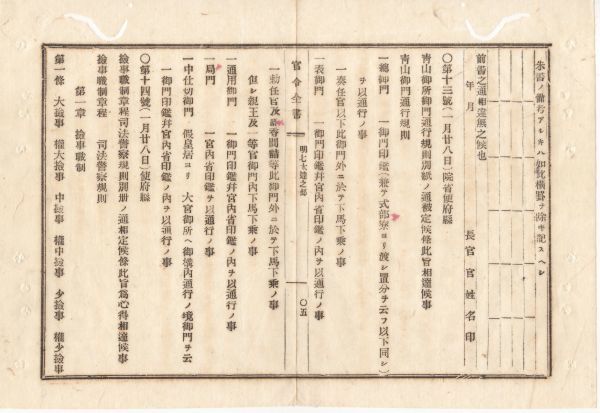 朱書ノ備考アルキハ如此橫罫ヲ除キ記スヘシ
前書之通相違無之候也
年月
長官官姓名印
〇第十三號(一月廿八日)院省使府縣
青山御所御門通行規則別紙ノ通被定候條此旨相達候事
青山御門通行規則
一總御門 一御門印鑑(兼テ式部寮ヨリ渡シ置分ヲ云フ以下同シ)
ヲ以通行ノ事
一奏任官以下此御門外ニ於テ下馬下乘ノ事
一表御門 一御門印鑑幷宮內省印鑑ノ內ヲ以通行ノ事
官令全書
明七太達之部
〇五
一勅任官及麝香間詰等此御門外ニ於テ下馬下乘ノ事
但シ親王及一等官御門內下馬下乘ノ事
一通用御門 一御門印鑑幷宮內省印鑑ノ內ヲ以通行ノ事
一局門 一宮內省印鑑ヲ以通行ノ事
一中仕切御門 假皇居ヨリ大宮御所ヘ御構內通行ノ境御門ヲ云
一御門印鑑幷宮內省印鑑ノ內ヲ以通行ノ事
〇第十四號(一月廿八日)使府縣
撿事職制章程司法警察規則別册ノ通相定候條此旨爲心得相達候事
撿事職制章程 司法警察規則
第一章 撿事職制
第一條 大撿事 權大撿事 中撿事 權中撿事 少撿事 權少撿事